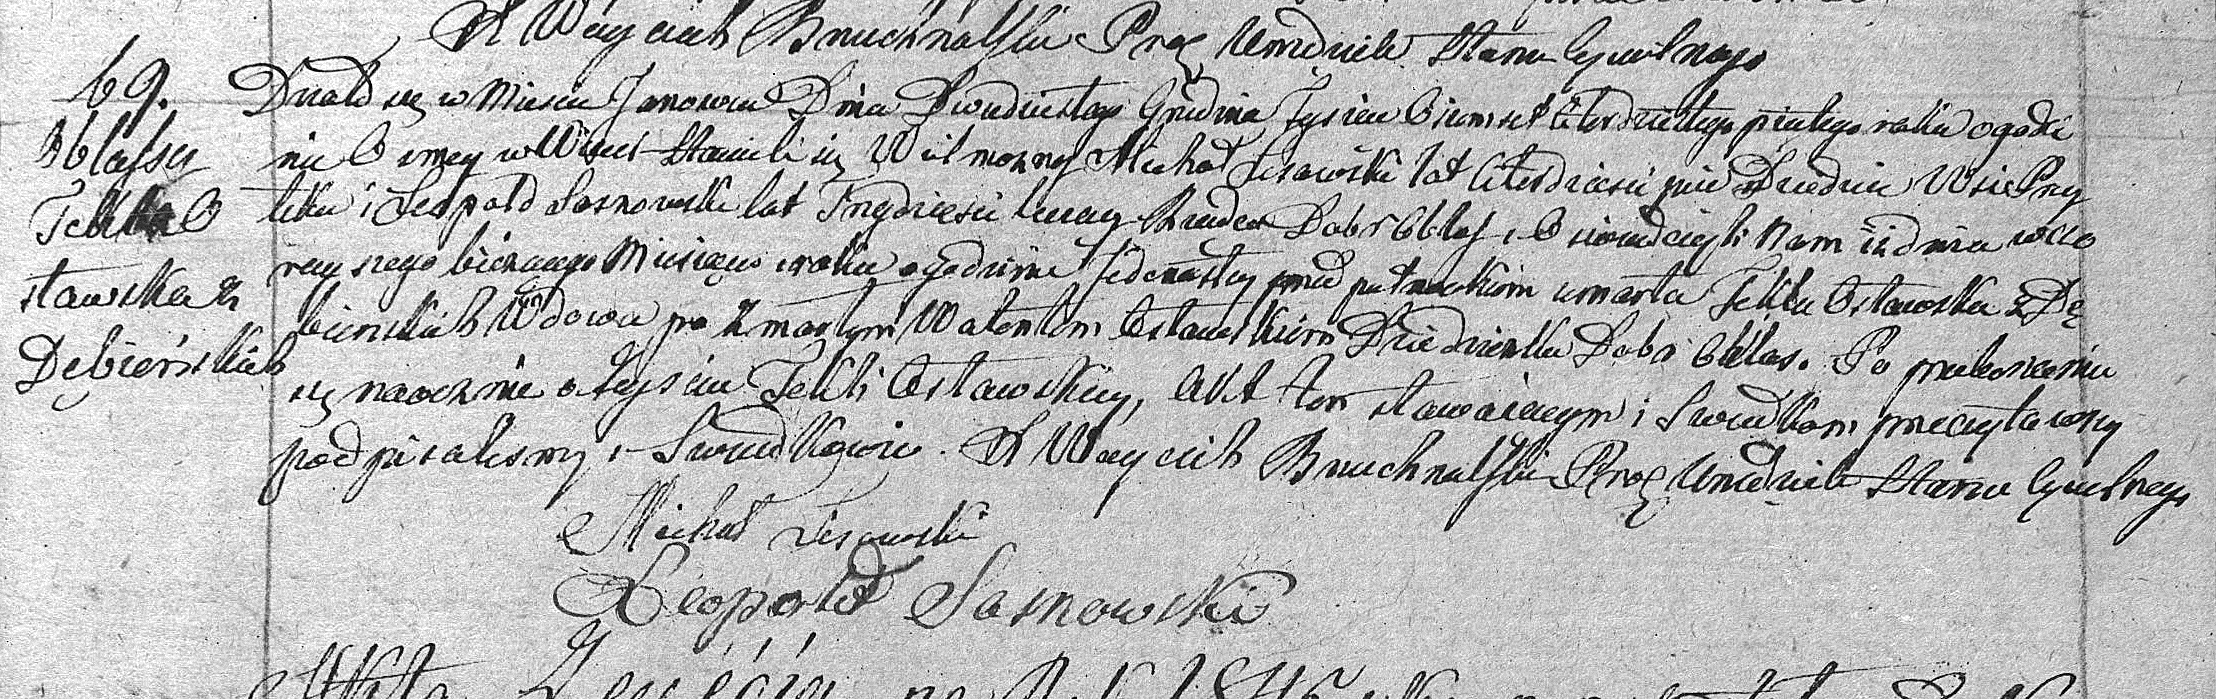 X Woyciech Bruchnalski Prob Urzednik Stanu Cywilnego
69.
Oblassy
Tekla O
stawska z
Dębieńskich
Działo się w Miescie Janowcu Dnia Dwudziestego Grudnia Tysiąc Osiemset Czterdziestego piątego roku o godzi
nie Osmey w Wieczor Stawili się Wielmożny Michał Lisowski lat Czterdzieści Dziedzic Wsi Przy
łęku i Leopold Sosnowski lat Trzydzieści liczący Rządca Dobr Oblas, i Oswiadczyli Nam iż dnia wczo
rayszego bieżącego Miesiąca i roku o godzinie Jedenastey przed południem umarła Tekla Ostawska z Dę
bienskich Wdowa po Zmarłym Walentem Ostawskim Dziedziczka Dobr Oblas. Po przekonaniu
się naocznie o zejsciu Tekli Ostawskiey, Akt ten stawaiącym i Swiadkom przeczytawszy
podpisalismy i Swiadkowie. X Woyciech Bruchnalski Prob Urzednik Stanu Cywilnego
Michał Lisowski
Leopold Sosnowski